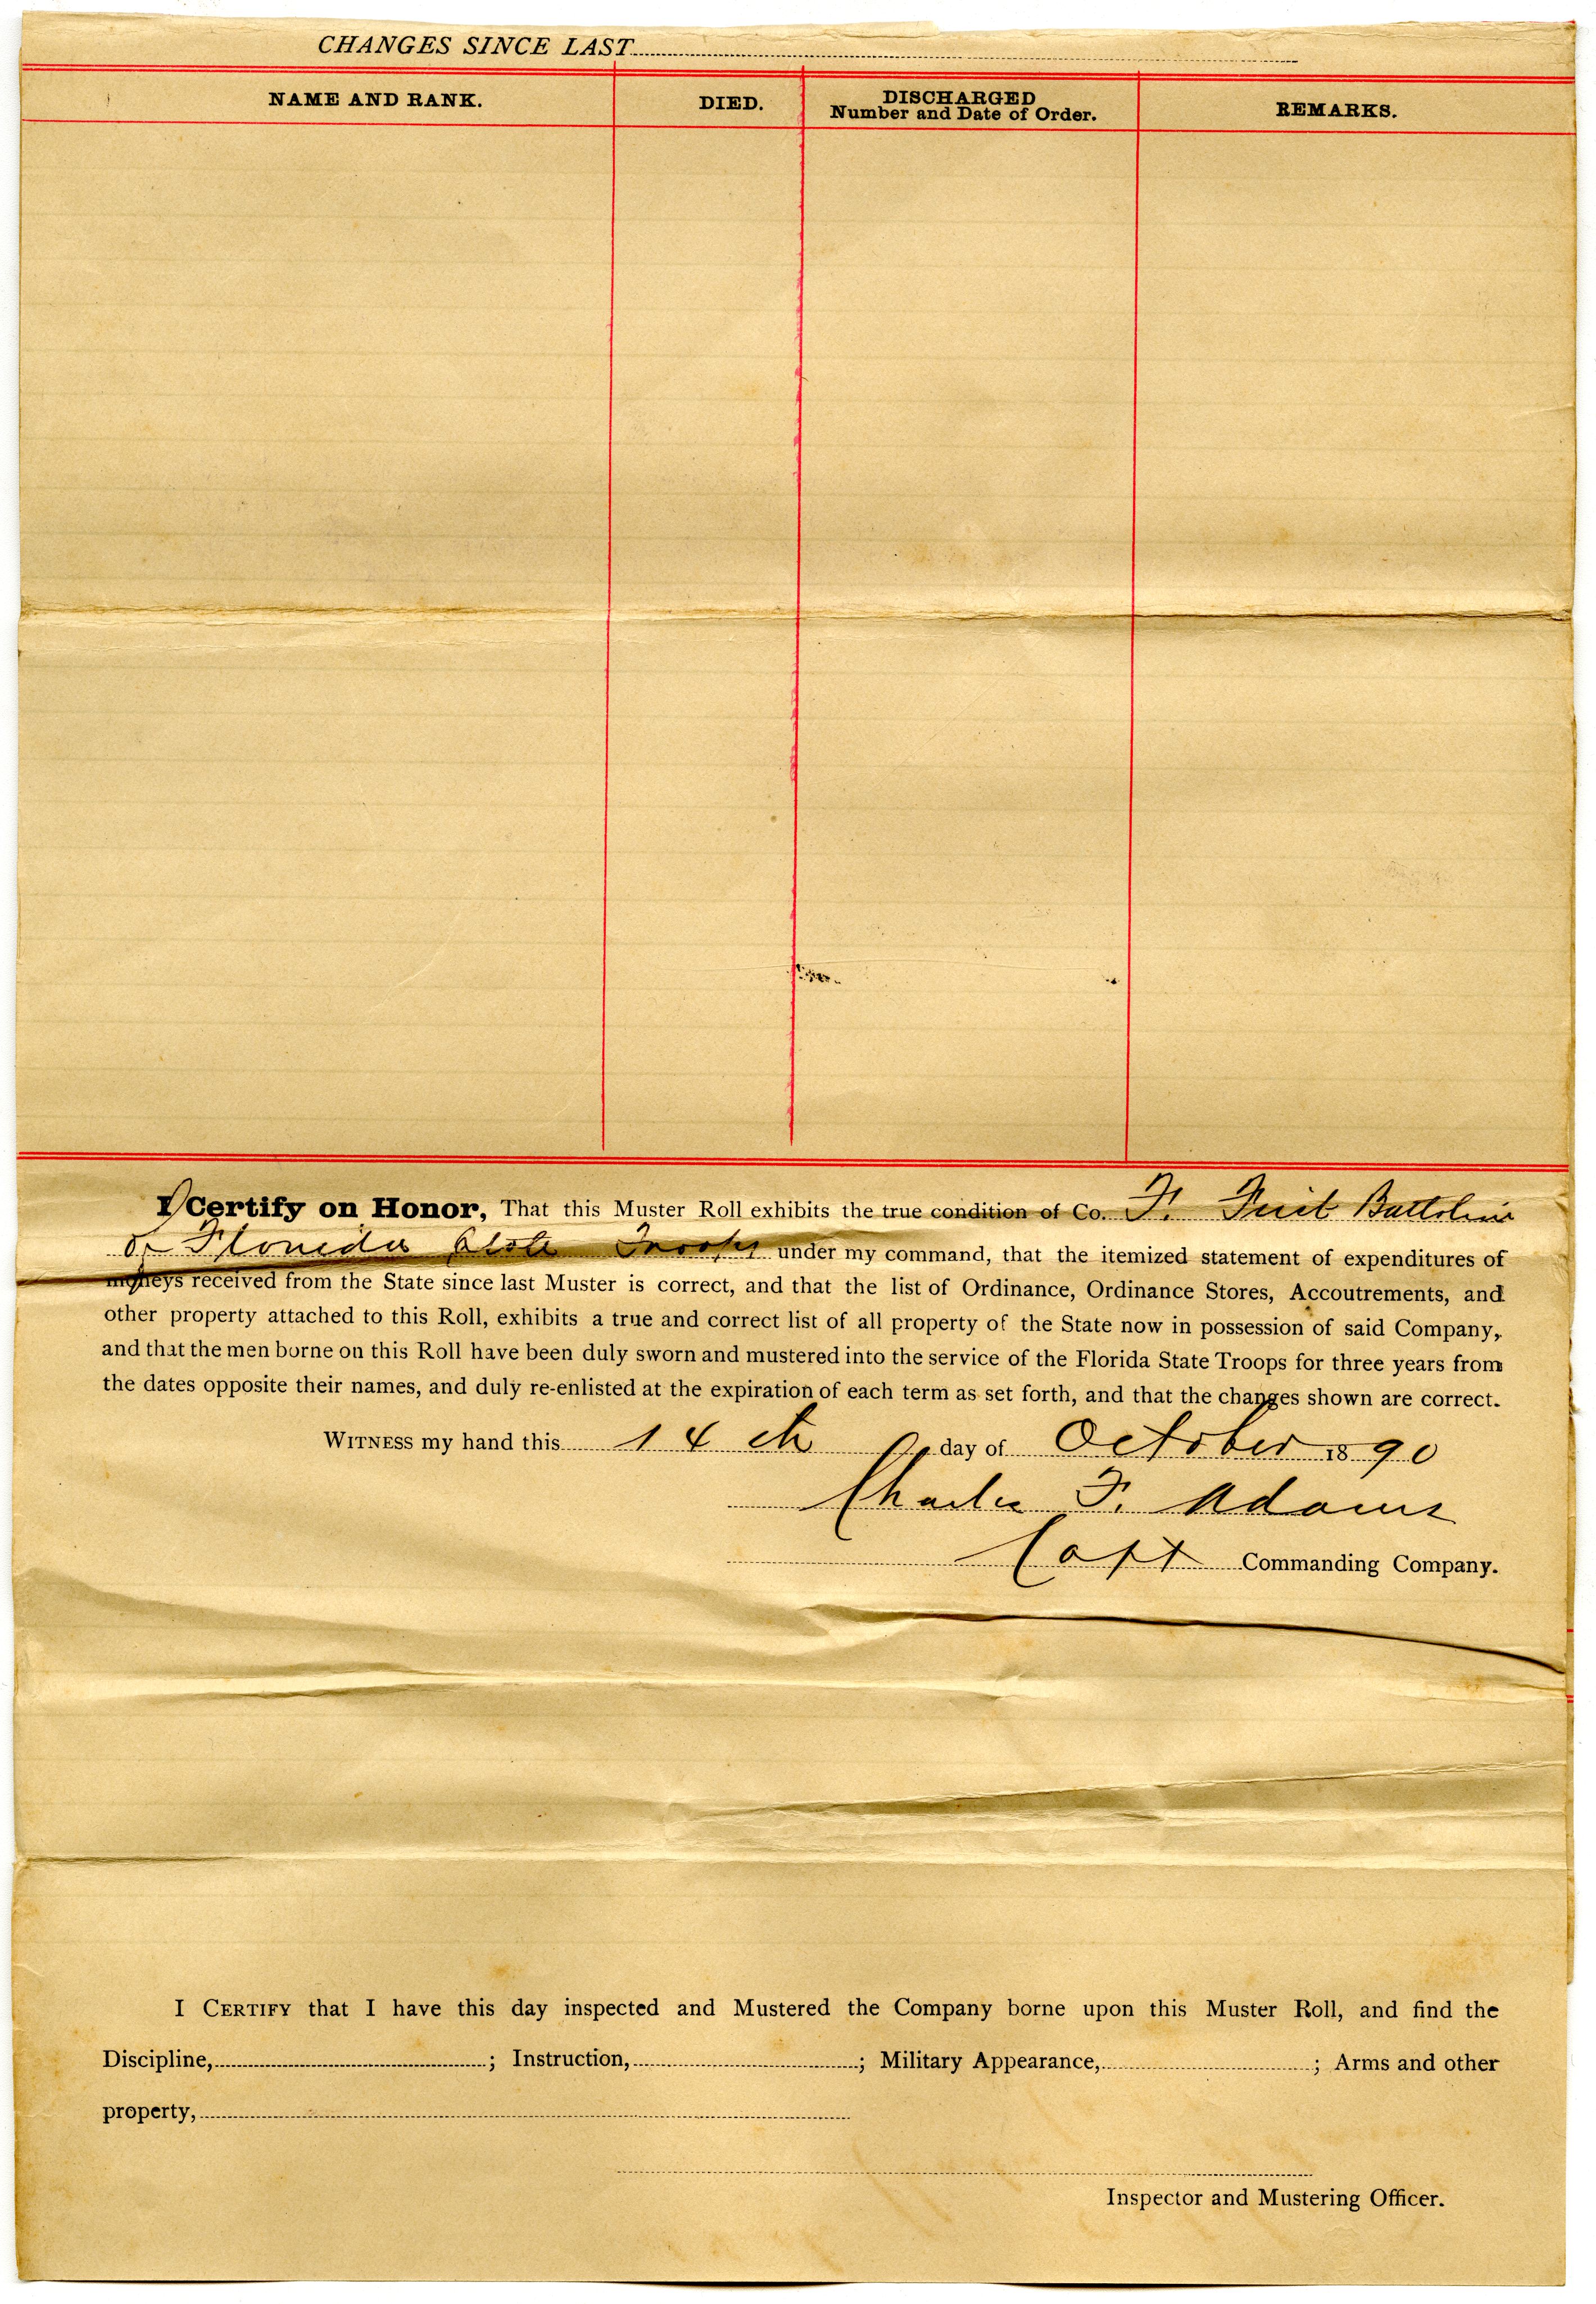 CHANGES SINCE LAST
NAME AND RANK.
DIED.
DISCHARGED
Number and Date of Order.
REMARKS.
I Certify on Honor, That this Muster Roll exhibits the true condition of Co. F. First Battalion
of Florida State Troops under my command, that the itemized statement of expenditures of
moneys received from the State since last Muster is correct, and that the list of Ordinance, Ordinance Stores, Accoutrements, and
other property attached to this Roll, exhibits a true and correct list of all property of the State now in possession of said Company,
and that the men borne on this Roll have been duly sworn and mustered into the service of the Florida State Troops for three years from
the dates opposite their names, and duly re-enlisted at the expiration of each term as set forth, and that the changes shown are correct.
WITNESS my hand this 14th day of October 1890
Charles F. Adams
Capt Commanding Company.
I CERTIFY that I have this day inspected and Mustered the Company borne upon this Muster Roll, and find the
Discipline, ; Instruction, ; Military Appearance, ; Arms and other
property,
Inspector and Mustering Officer.